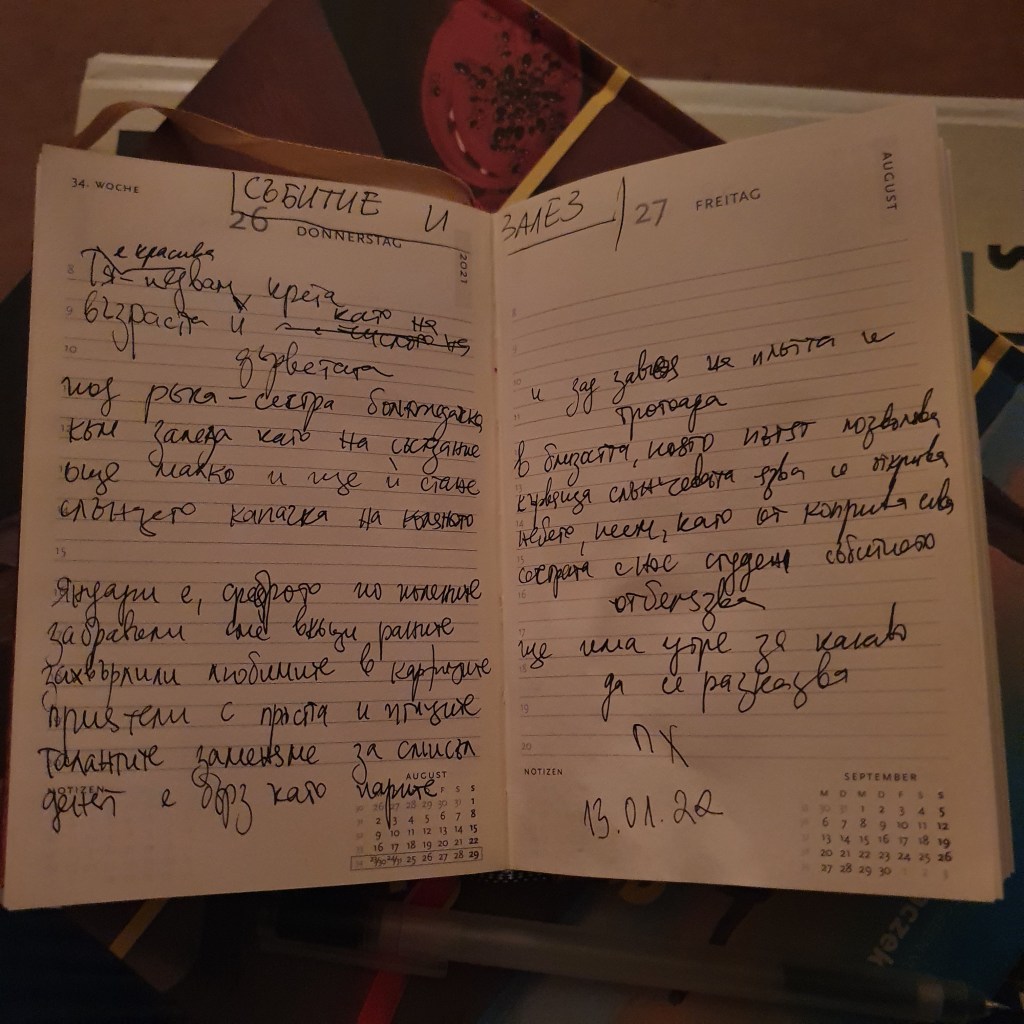 34. WOCHE
СЪБИТИЕ И
26 DONNERSTAG
2021
е красива
Тя
8
9
възраста и като на
10
дърветата
под ръка – сестра
към залеза като на
още малко и ще ѝ стане
слънцето капачка на коляното
15
Януари е, среброто по
забравили сме вкъщи раните
захвърлили любимите в
приятели с проста и
талантите заменяме за смисъл
NOTIZEN
денят е бърз като парите
AUGUST
F S S
26 27 28 29 30 31 1
2 3 4 5 6 7 8
9 10 11 12 13 14 15
16 17 18 19 20 21 22
23/30 24/31 25 26 27 28 29
ЗАЛЕЗ
27 FREITAG
AUGUST
и зад завоя на плътта и
тротоара
в близостта, която пътят позволява
кървяща слънчевата язва се открива
небето, пеем, като от коприва сива
сестрата с нос студен събитието
отбелязва
ще има утре за какво
да се разказва
20
ПХ
NOTIZEN
13.01.22
SEPTEMBER
M D M D F S S
30 31 1 2 3 4 5
6 7 8 9 10 11 12
13 14 15 16 17 18 19
20 21 22 23 24 25 26
27 28 29 30 1 2 3
czek